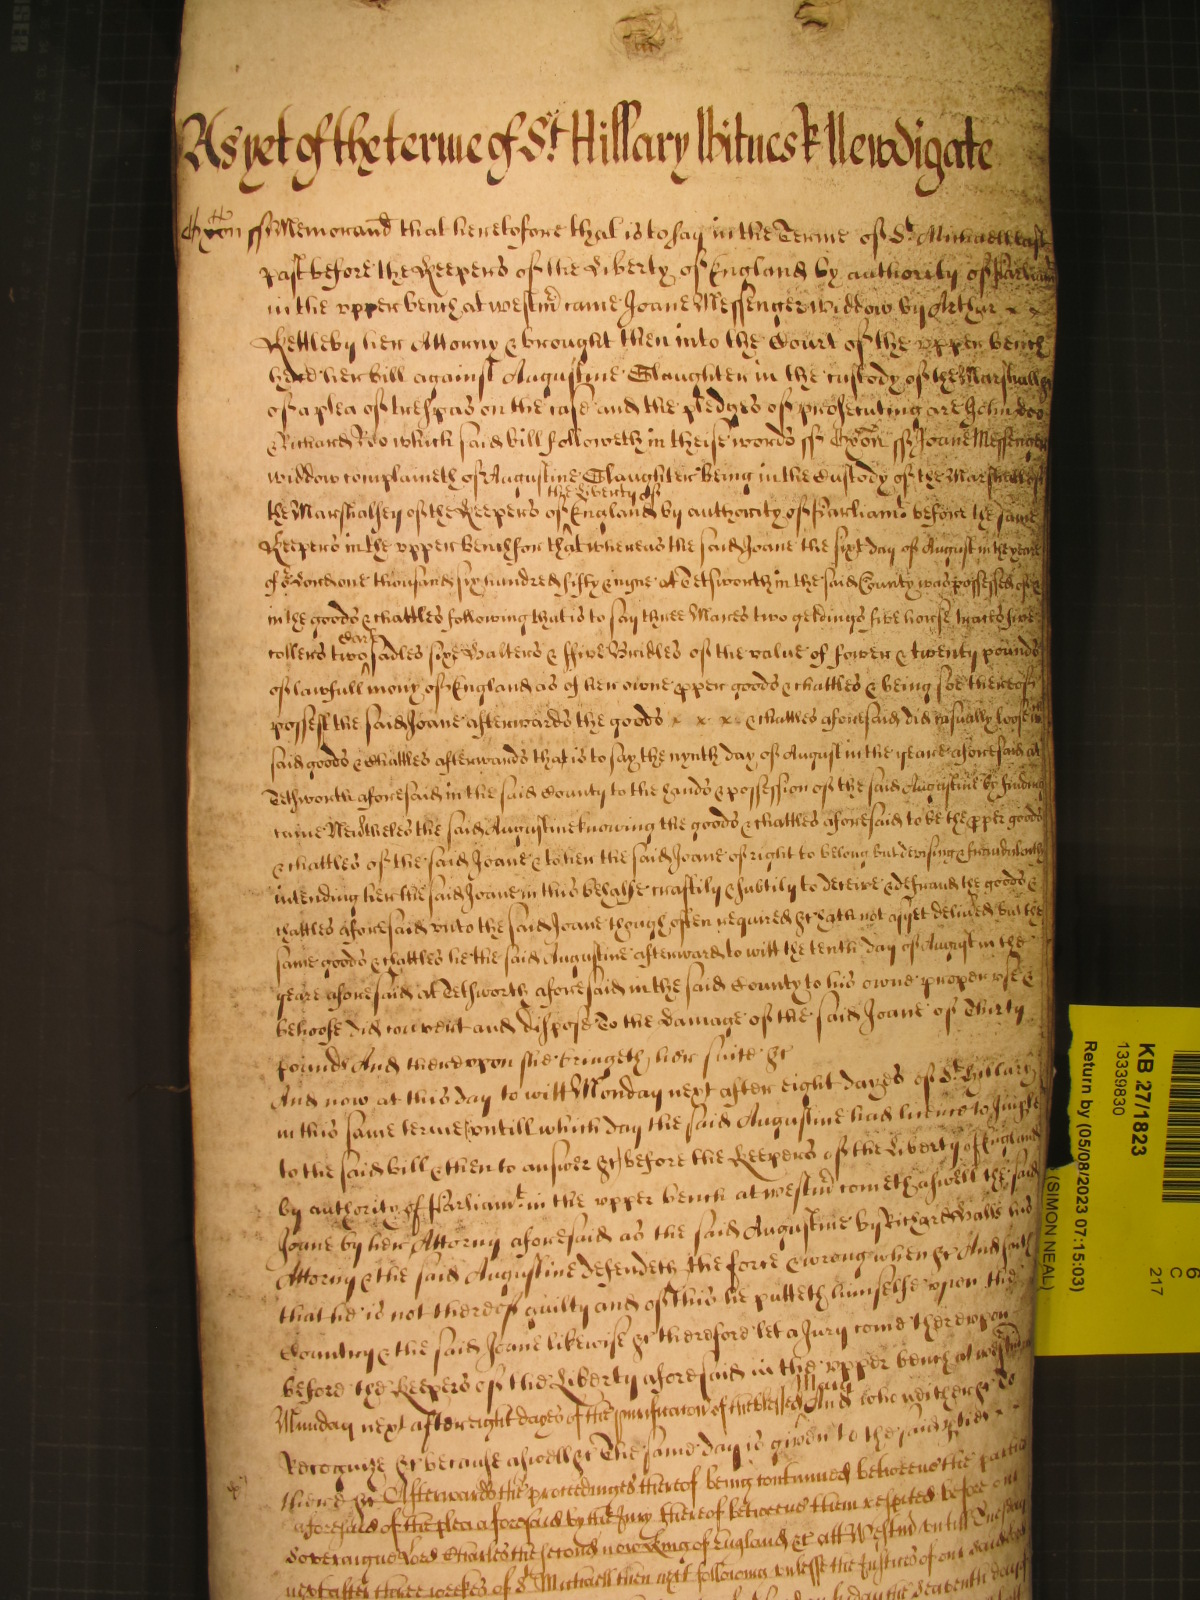 As yet of the terme of St Hillary Witnes R Newdigate
Oxon ss Memorand that heretofore that is to say in the Terme of St Michaell last
past before the Keepers of the Liberty of England by authority of Parliamt
in the upper bench at westmr came Joane Messenger widdow by Arthur
Kettleby her Attorny & brought then into the Court of the upper bench
here her bill against Augustine Slaughter in the custody of the Marshall &c
of a plea of trespas on the case and the pledges of prosecuting are John Doo
& Richard Roo which said bill followeth in theise words ss Oxon ss Joane Messenger
widdow complaineth of Augustine Slaughter being in the Custody of the Marshall of
the liberty of
the Marshalsey of the Keepers of England by authority of Parliamt before the same
Keepers in the upper bench for that whereas the said Joane the sixt day of August in the yeare
of or Lord one thousand six hundred fifty & nyne at Tetsworth in the said County was possessed of &
in the goods & chattles following that is to say three Mares two geldings five horse traces five
Cart
collers two sadles sixe Halters & ffive Bridles of the value of fower & twenty pounds
of lawfull mony of England as of her owne pper goods & chattles & being soe thereof
possest the said Joane afterwards the goods & chattles aforesaid did casually loose
said goods & Chattles afterwards that is to say the nynth day of August in the yeare aforesaid at
Tetsworth aforesaid in the said County to the hands & possession of the said Augustine by finding
came Nevtheles the said Augustine knowing the goods & chattles aforesaid to be the pper goods
& chattles of the said Joane & to her the said Joane of right to belong but devising & fraudulently
intending her the said Joane in this behalfe craftily & subtily to deceive & defraud the goods &
chattles aforesaid unto the said Joane though often required &c hath not as yet delived but the
same goods & chattles he the said Augustine afterward to witt the tenth day of August in the
yeare aforesaid at Tetsworth aforesaid in the said County to his owne proper use &
behoofe did convert and dispose To the damage of the said Joane of Thirty
pounds And thereupon she bringeth her suite &c
And now at this day to witt Monday next after eight dayes of St Hillary
in this same terme untill which day the said Augustine had licence to Imple
to the said bill & then to answer &c before the Keepers of the Liberty of England
by authority of Parliamt in the upper bench at westmr cometh aswell the said
Joane by her Attorny aforesaid as the said Augustine by Richard Halls his
Attorny & the said Augustine defendeth the force & wrong when &c And saith
that he is not thereof guilty and of this he putteth himselfe upon the
Country & the said Joane likewise &c therefore let a Jury come thereupon
before the Keepers of the Liberty aforesaid in the upper bench at westmr
Mary
Munday next after eight dayes of the purificacon of the blessed And who neither &c to
Recognize &c because aswell &c The same day is given to the said pties
there &c Afterwards the proceedinges thereof being continued betweene the parties
aforesaid of the plea aforesaid by the Jury thereof betweene them respited before our
Soveraigne Lord Charles the second now King of England &c att Westmr untill Tuesday
next after three weekes of St Michaell then next following unlesse the Justices of our
the Seaventh day of
KB 27/1823
13339830
Return by (05/08/2023 07:15:03)
(SIMON NEAL)
6
C
217